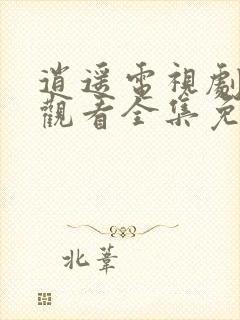 逍遥電視劇
觀看全集免
北葦